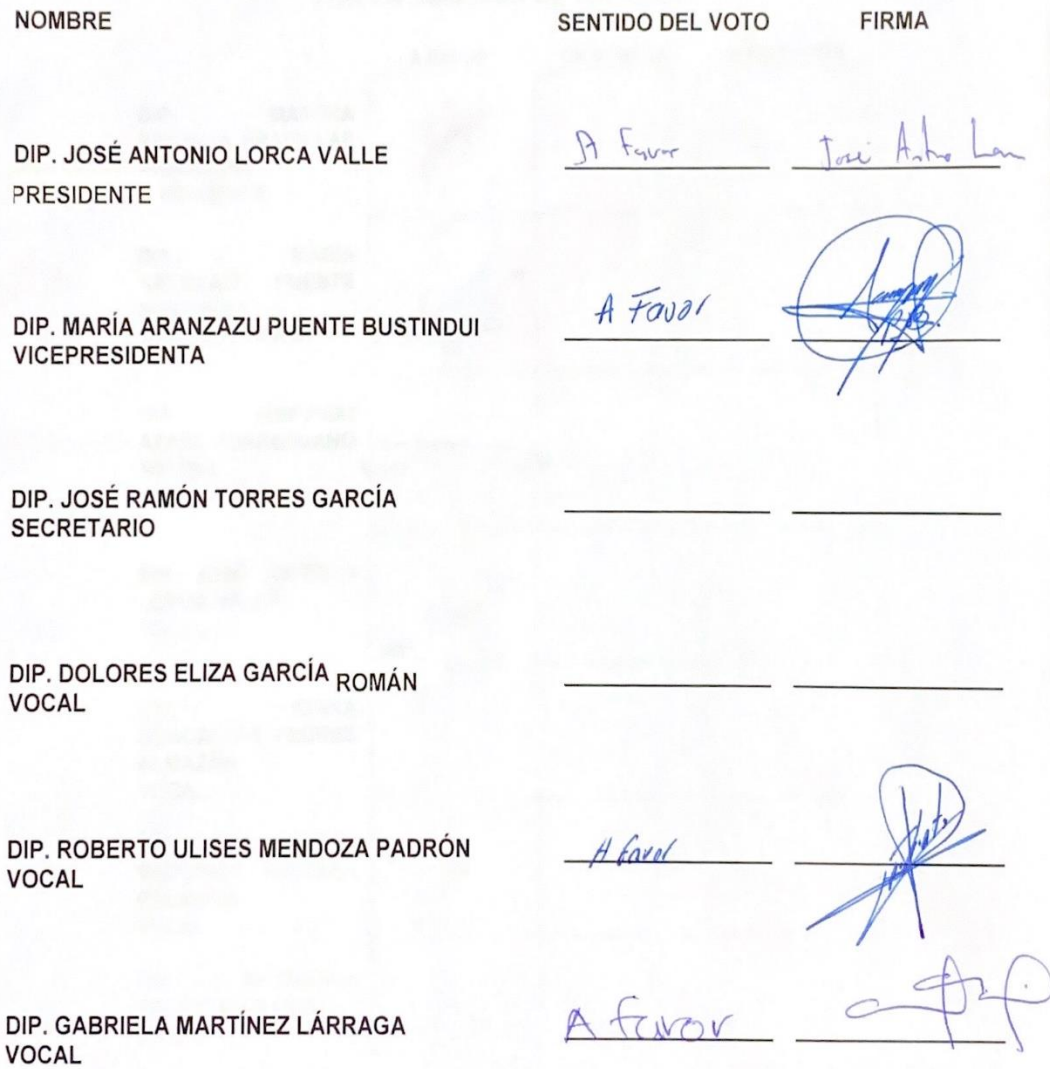 NOMBRE SENTIDO DEL VOTO FIRMA
DIP. JOSÉ ANTONIO LORCA VALLE A Favor José Anto
PRESIDENTE
DIP. MARÍA ARANZAZU PUENTE BUSTINDUI A Favor
VICEPRESIDENTA
DIP. JOSÉ RAMÓN TORRES GARCÍA
SECRETARIO
DIP. DOLORES ELIZA GARCÍA ROMÁN
VOCAL
DIP. ROBERTO ULISES MENDOZA PADRÓN A favor
VOCAL
DIP. GABRIELA MARTÍNEZ LÁRRAGA A favor
VOCAL